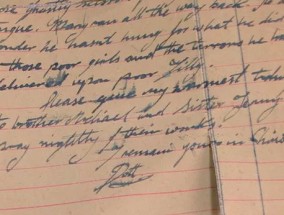 ose ghostly
ngue. Mary ran all the way back.
onder he wasn't hung for what he did
those poor girls and the terrors he ha
delivered upon poor
Please give my warmest
to brother Michael and Sister Jenny
pray nightly of their
I remain yours in